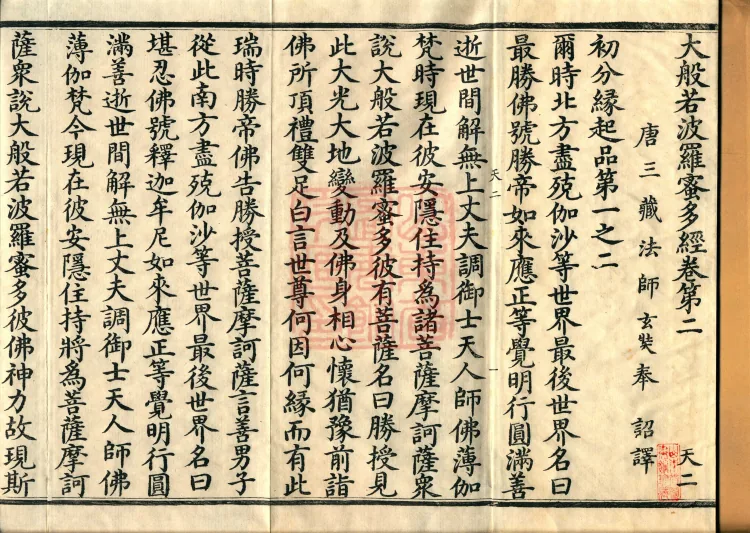 大般若波羅蜜多經卷第二 天二
唐三藏法師玄奘奉 詔譯
初分緣起品第一之二
爾時北方盡殑伽沙等世界最後世界名曰
最勝佛號勝帝如來應正等覺明行圓滿善
天二 一
逝世間解無上丈夫調御士天人師佛薄伽
梵時現在彼安隱住持為諸菩薩摩訶薩衆
說大般若波羅蜜多彼有菩薩名曰勝授見
此大光大地變動及佛身相心懷猶豫前詣
佛所頂禮雙足白言世尊何因何緣而有此
瑞時勝帝佛告勝授菩薩摩訶薩言善男子
從此南方盡殑伽沙等世界最後世界名曰
堪忍佛號釋迦牟尼如來應正等覺明行圓
滿善逝世間解無上丈夫調御士天人師佛
薄伽梵今現在彼安隱住持將為菩薩摩訶
薩衆說大般若波羅蜜多彼佛神力故現斯